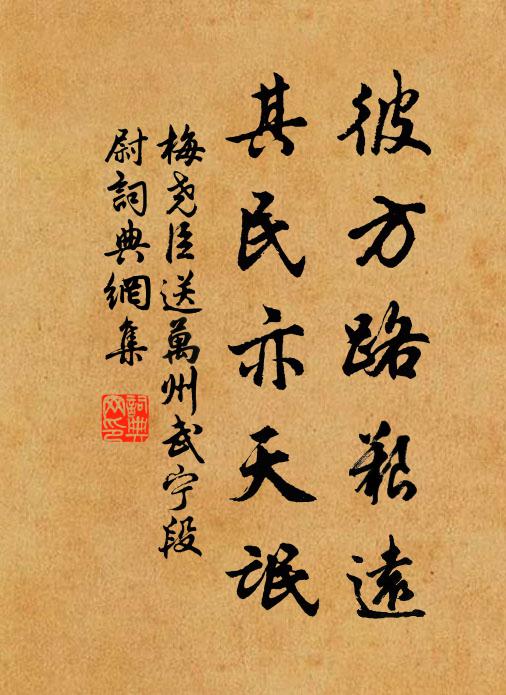 彼方路艱遠
其民亦天氓
梅尧臣送萬州武宁段
尉詞典網集
詞典
网印